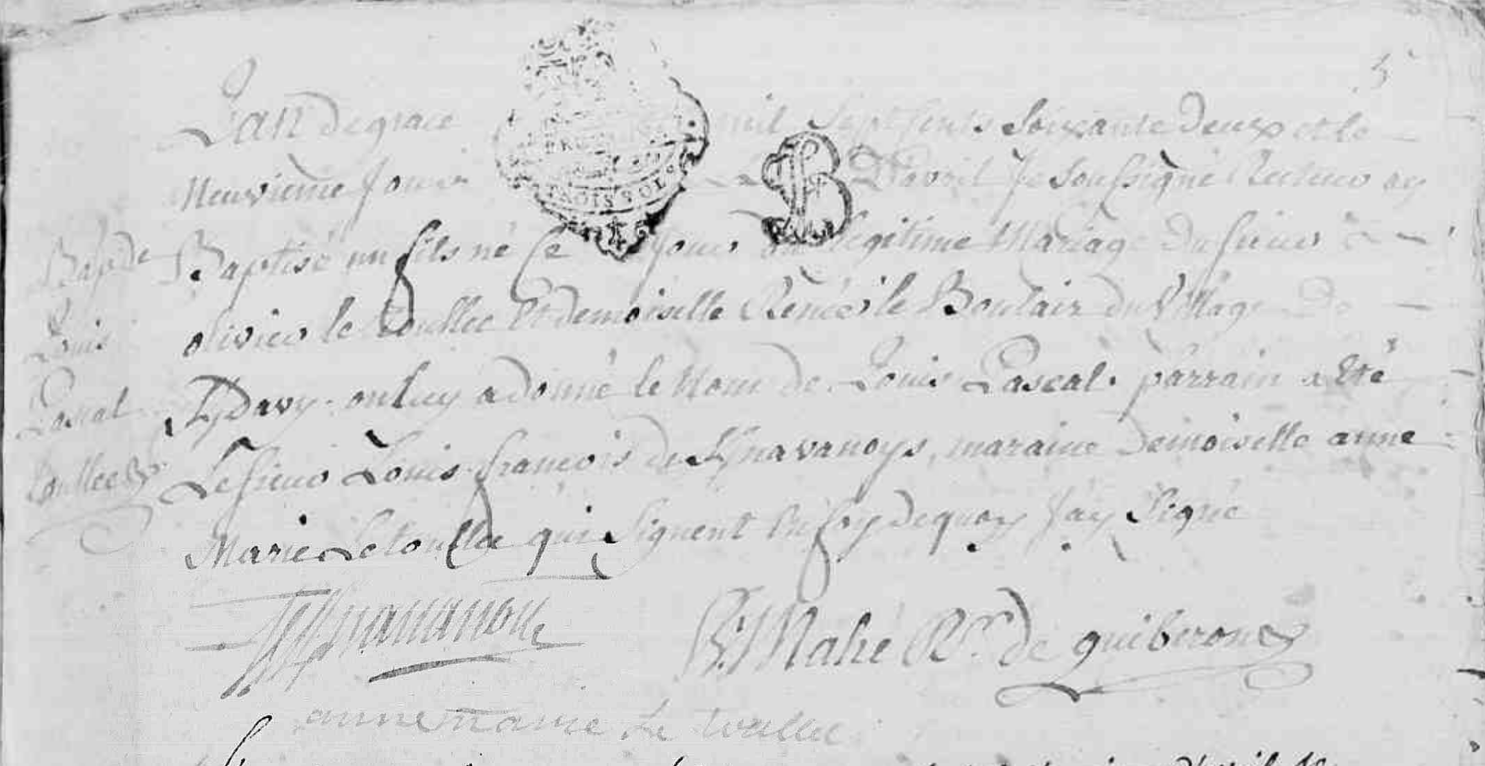 5
L'an de grace mil Sept Cents Soixante deux et le
Neuvieme Jour D'avril Je Soussigné Recteur ay
TROIS SOLS
B
Bap de Baptisé un fils né Ce jour du légitime Mariage du sieur
Louis olivier le toullec Et demoiselle Renée le Boulair du Village De
Pascal Kdavy. on luy a donné le Nom de Louis Pascal. parrain a Eté
toullec Le sieur Louis francois de Knavanoys, maraine Demoiselle anne
Marie Le toullec qui Signent En foy de quoy J'ay Signé
Knavanoys
B: Mahé Rr. de quiberon
anne marie Le toullec